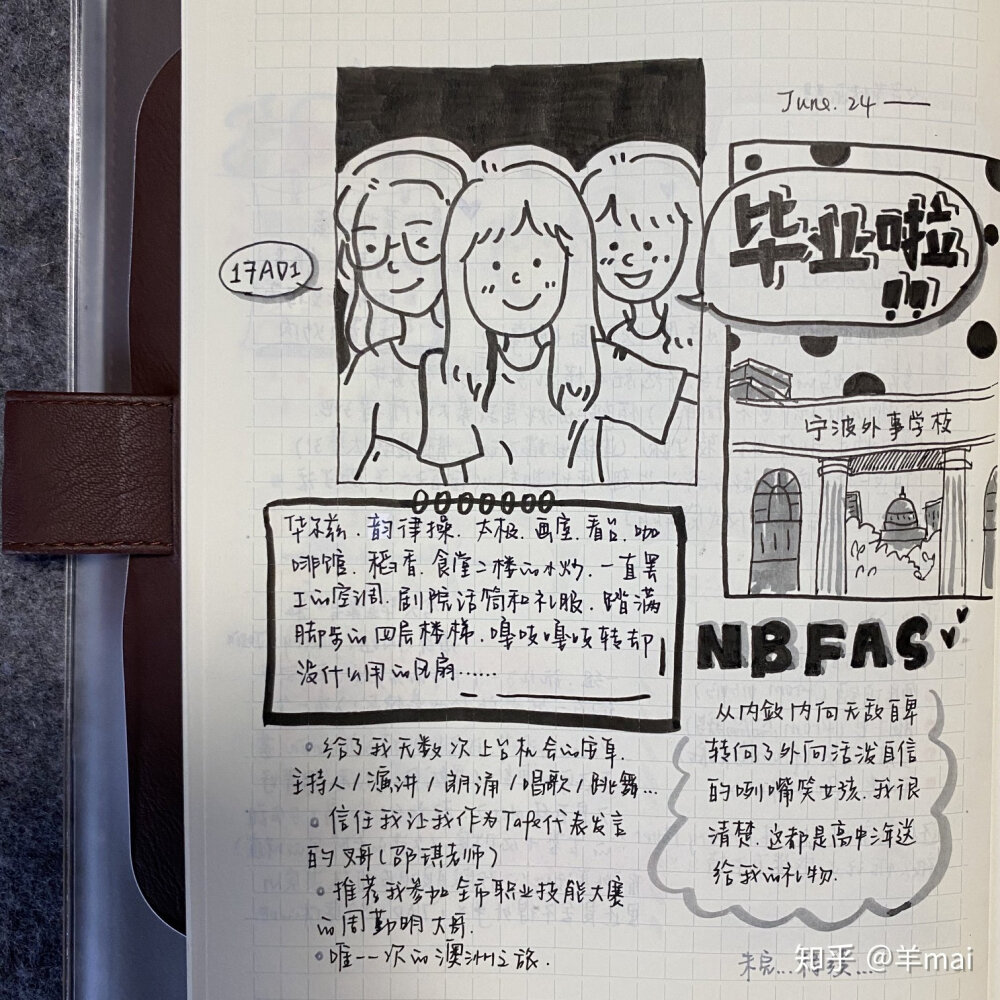 June. 24 —
毕业啦!!
17AD1
宁波外事学校
华尔兹.韵律操.太极.画室.看台.咖
啡馆.稻香.食堂二楼的小炒.一直罢
工的空调.剧院话筒和礼服.踏满
脚步的四层楼梯.嘎吱嘎吱转却
没什么用的风扇……
NBFAS
从内敛内向无敌自卑
转向了外向活泼自信
的咧嘴笑女孩.我很
清楚.这都是高中3年送
给我的礼物.
给了我无数次上台机会的
主持人/演讲/朗诵/唱歌/跳舞…
信任我让我作为Tafe代表发言
的 哥(邵琪老师)
推荐我参加全市职业技能大赛
的周勤明大哥.
唯一一次的澳洲之旅.
未完…待续…
知乎 @羊mai